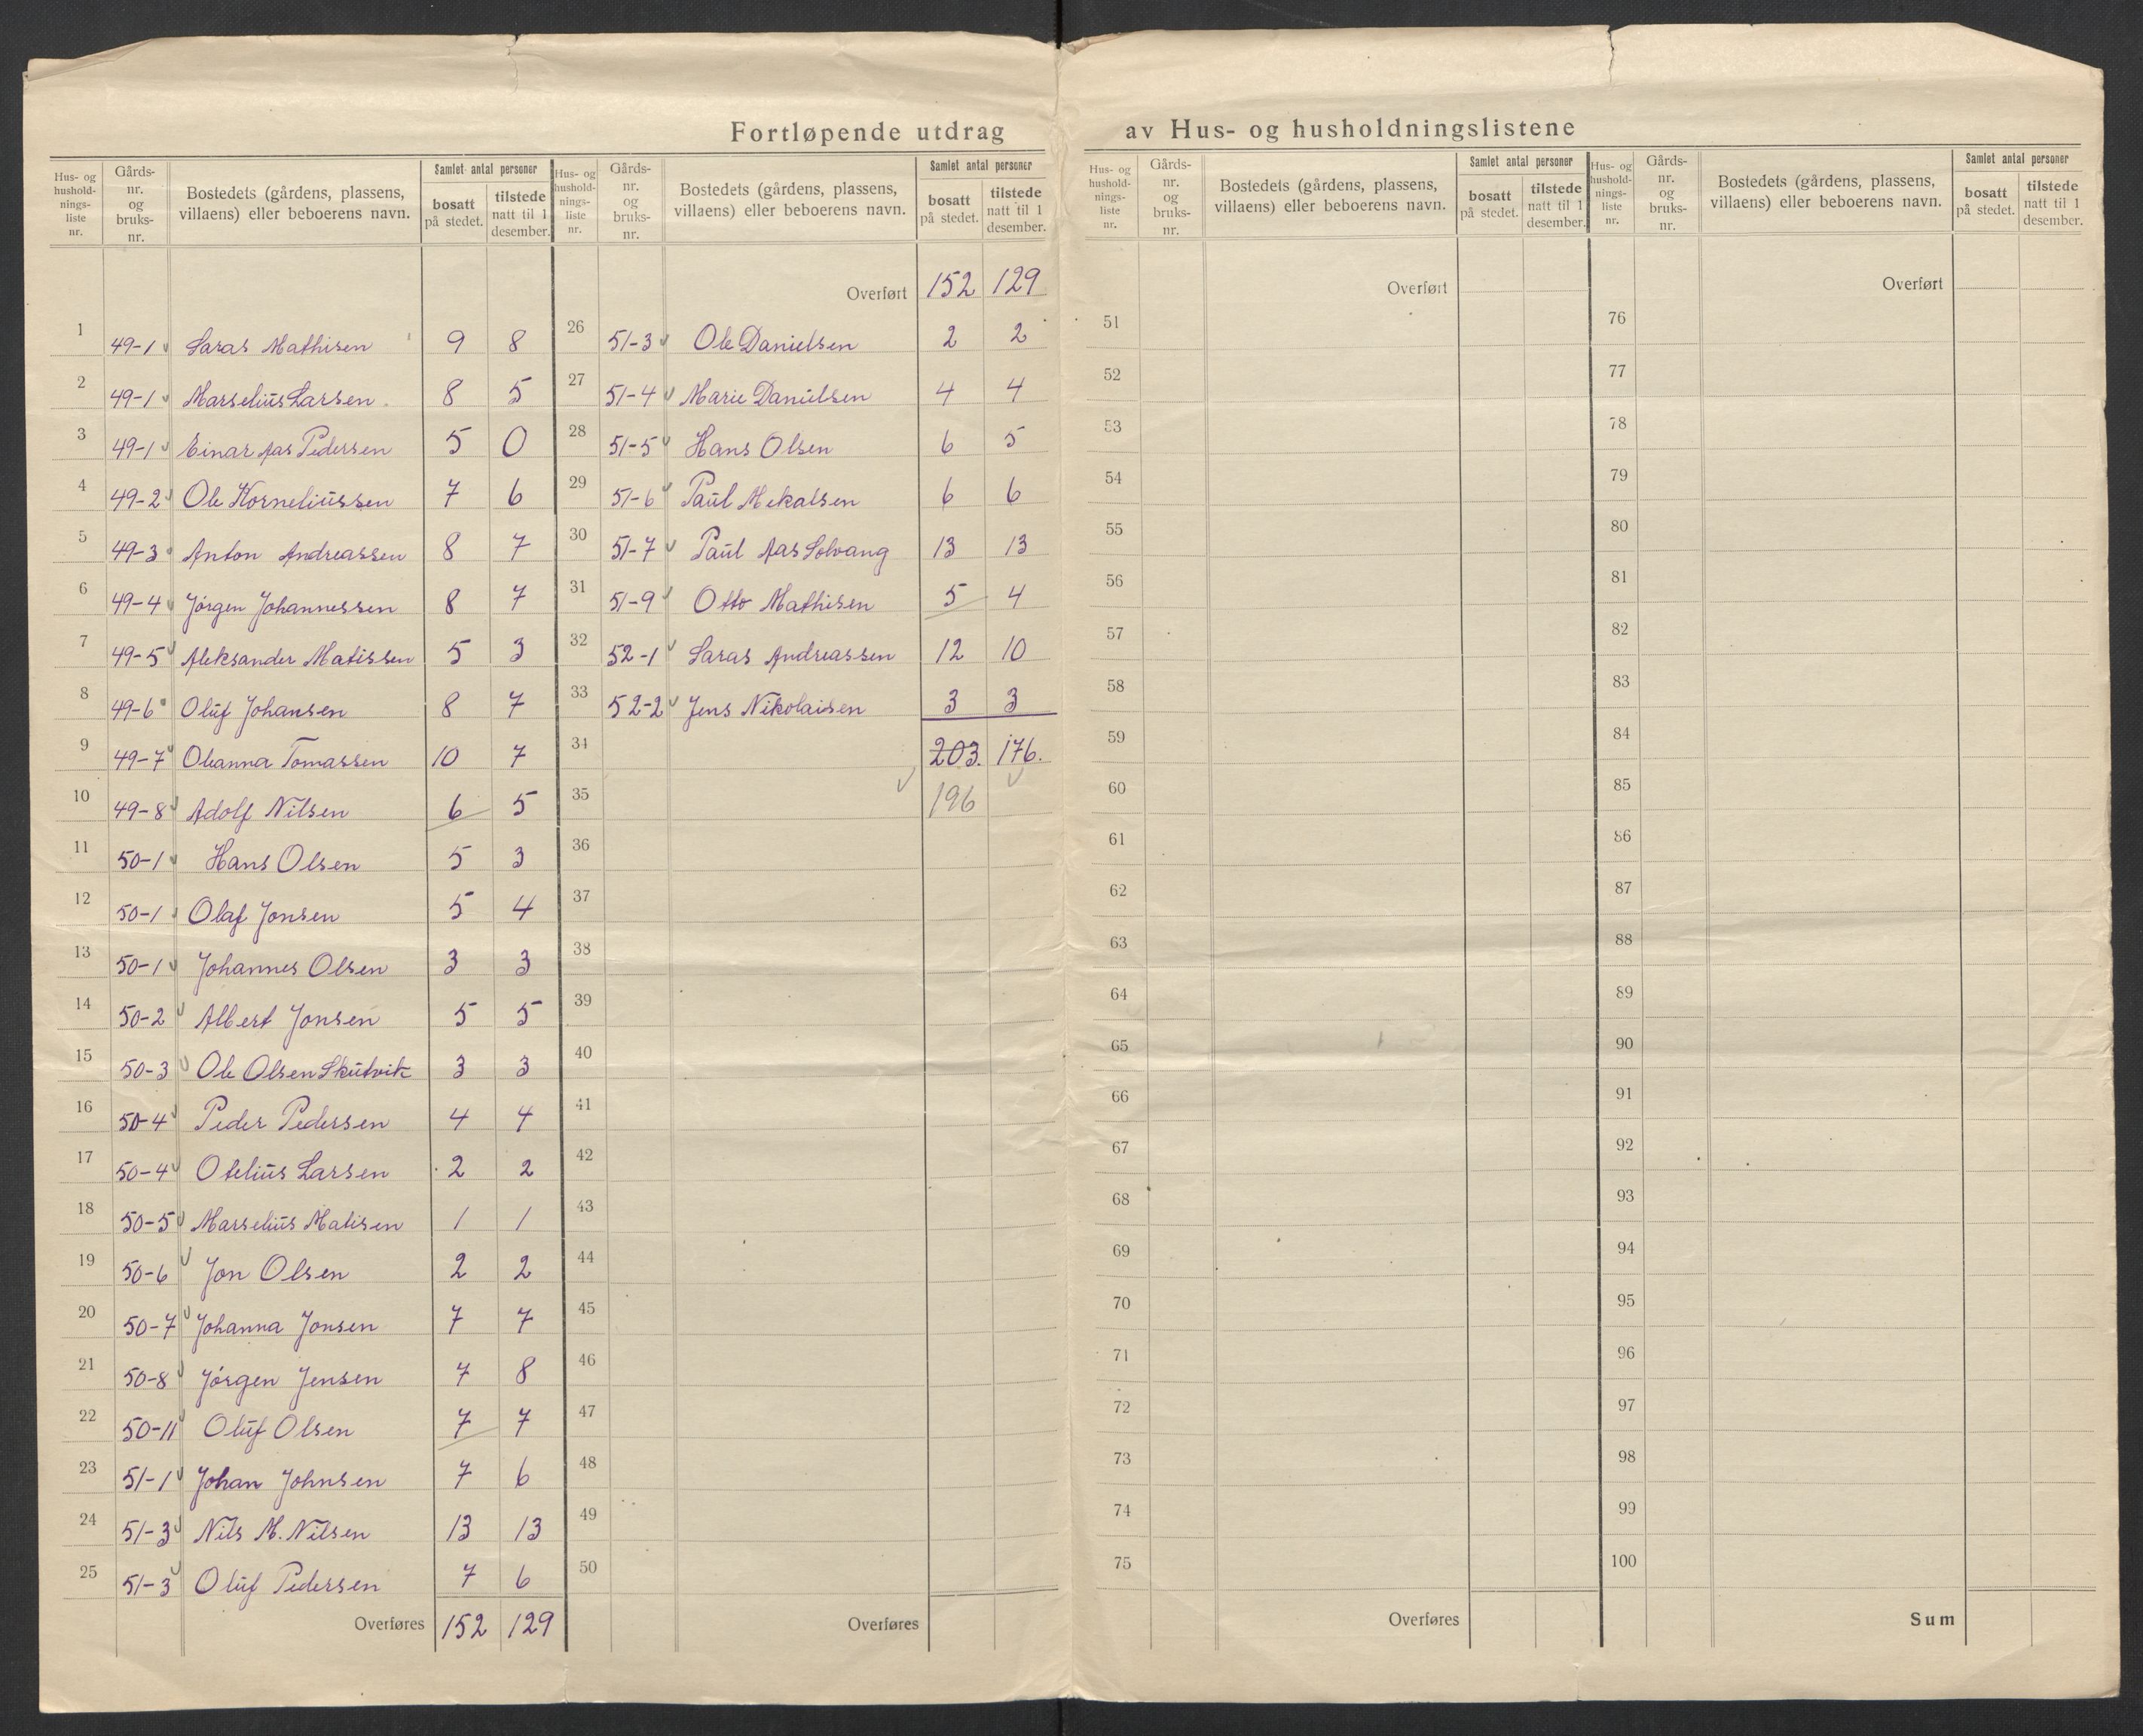 Fortløpende utdrag av Hus- og husholdningslistene
Hus- og hushold-nings-liste nr. | Gårds-nr. og bruks-nr. | Bostedets (gårdens, plassens, villaens) eller beboerens navn. | Samlet antal personer | bosatt på stedet. | tilstede natt til 1 desember.
1 49-1 Laras Mathisen 9 8
2 49-1 Marselius Larsen 8 5
3 49-1 Einar Aas Pedersen 5 0
4 49-2 Ole Korneliussen 7 6
5 49-3 Anton Andreassen 8 7
6 49-4 Jørgen Johannessen 8 7
7 49-5 Aleksander Matissen 5 3
8 49-6 Oluf Johansen 8 7
9 49-7 Oleanna Tomassen 10 7
10 49-8 Adolf Nilsen 6 5
11 50-1 Hans Olsen 5 3
12 50-1 Olaf Jonsen 5 4
13 50-1 Johannes Olsen 3 3
14 50-2 Albert Jonsen 5 5
15 50-3 Ole Olsen Skutvik 3 3
16 50-4 Peder Pedersen 4 4
17 50-4 Otelius Larsen 2 2
18 50-5 Marselius Matisen 1 1
19 50-6 Jon Olsen 2 2
20 50-7 Johanna Jonsen 7 7
21 50-8 Jørgen Jensen 7 8
22 50-11 Oluf Olsen 7 7
23 51-1 Johan Johnsen 7 6
24 51-3 Nils M. Nilsen 13 13
25 51-3 Oluf Pedersen 7 6
Overføres 152 129
Hus- og hushold-nings-liste nr. | Gårds-nr. og bruks-nr. | Bostedets (gårdens, plassens, villaens) eller beboerens navn. | Samlet antal personer | bosatt på stedet. | tilstede natt til 1 desember.
Overført 152 129
26 51-3 Ole Danielsen 2 2
27 51-4 Marie Danielsen 4 4
28 51-5 Hans Olsen 6 5
29 51-6 Paul Mekalsen 6 6
30 51-7 Paul Aas Solvang 13 13
31 51-9 Otto Mathisen 5 4
32 52-1 Laras Andreassen 12 10
33 52-2 Jens Nikolaisen 3 3
34 203. 176.
35 196
36
37
38
39
40
41
42
43
44
45
46
47
48
49
50
Overføres
Hus- og hushold-nings-liste nr. | Gårds-nr. og bruks-nr. | Bostedets (gårdens, plassens, villaens) eller beboerens navn. | Samlet antal personer | bosatt på stedet. | tilstede natt til 1 desember.
Overført
51
52
53
54
55
56
57
58
59
60
61
62
63
64
65
66
67
68
69
70
71
72
73
74
75
Overføres
Hus- og hushold-nings-liste nr. | Gårds-nr. og bruks-nr. | Bostedets (gårdens, plassens, villaens) eller beboerens navn. | Samlet antal personer | bosatt på stedet. | tilstede natt til 1 desember.
Overført
76
77
78
79
80
81
82
83
84
85
86
87
88
89
90
91
92
93
94
95
96
97
98
99
100
Sum